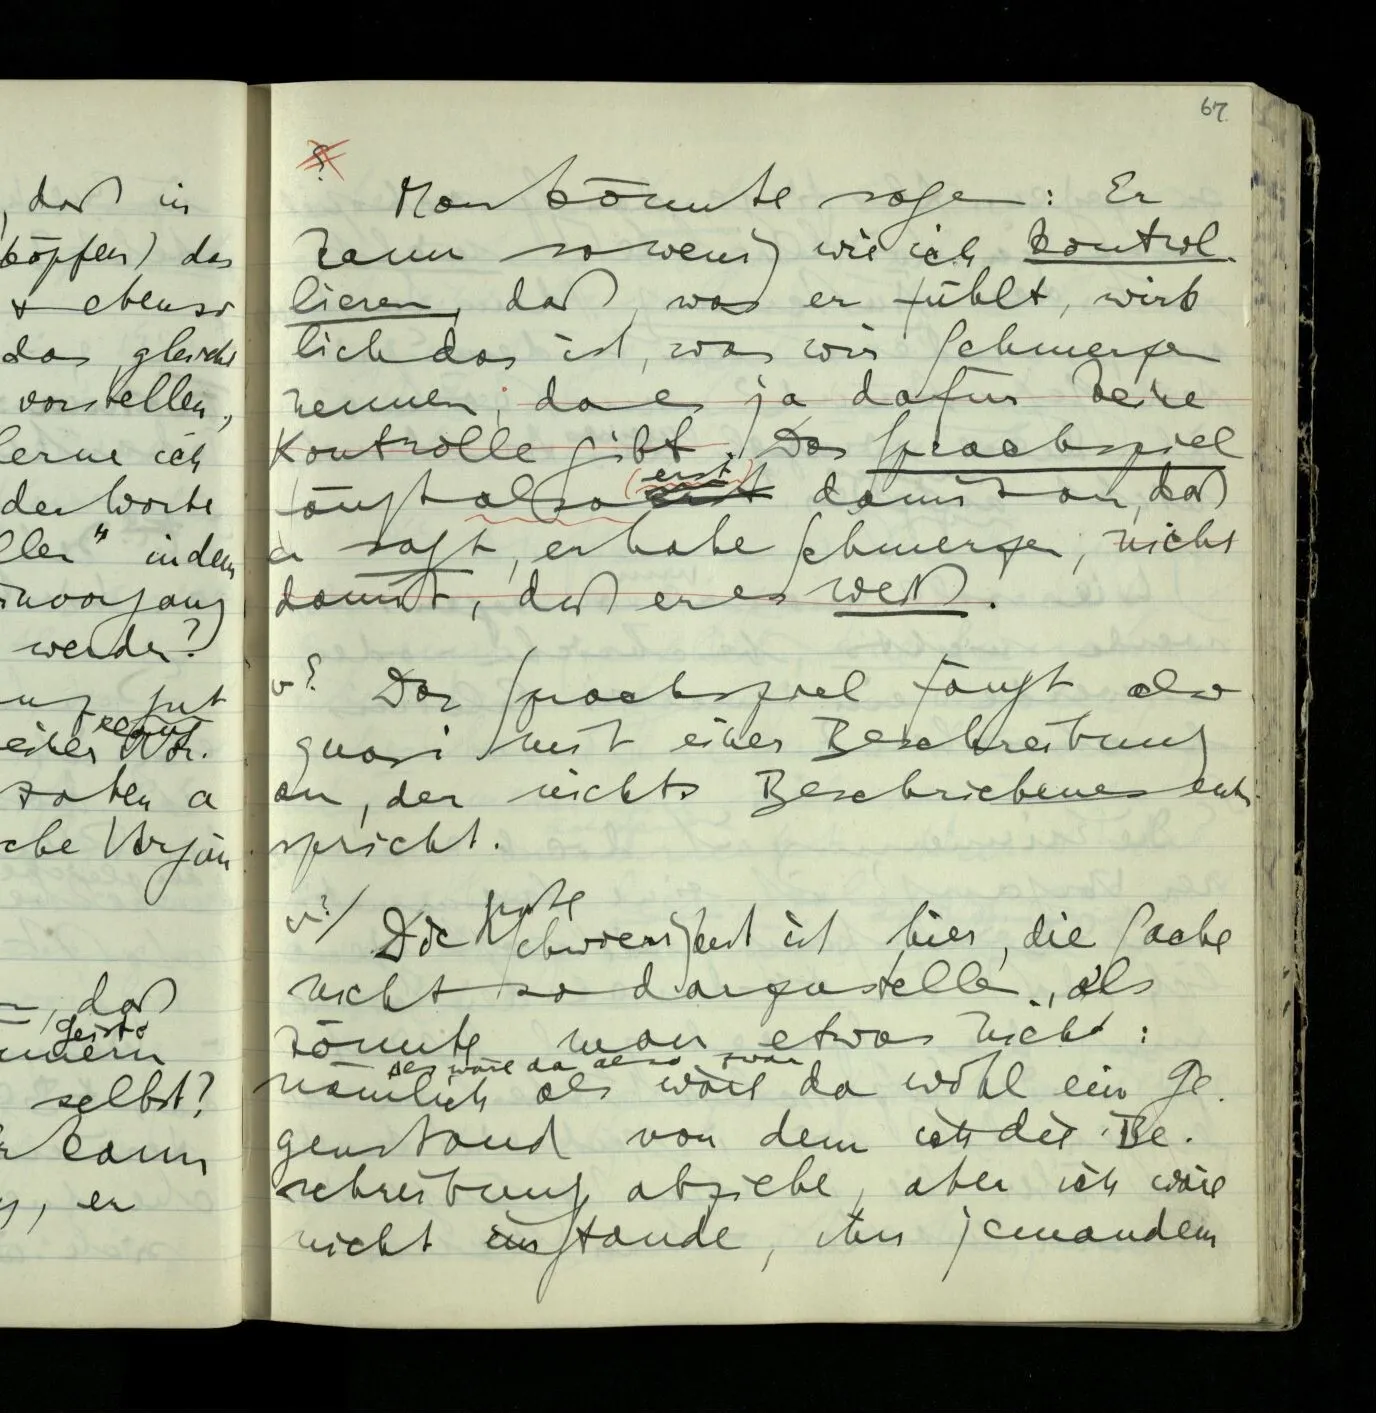 , daß in
köpfen) das
+ ebenso
das gleiche
vorstellen,
lerne ich
der Worte
ller" indem
nvorgang
werden?
gut
einer Wor.
che Vorgän
, daß
selbst?
kann
, er
67
?
Man könnte sagen: Er
kann sowenig wie ich kontrol-
lieren, daß, was er fühlt, wirk
lich das ist, was wir Schmerzen
nennen; da es ja dafür keine
Kontrolle gibt. Das Sprachspiel
erst
fängt also erst damit an, daß
er sagt, er habe Schmerzen, nicht
damit, daß er es weiß.
v ?
Das Sprachspiel fängt also
quasi mit einer Beschreibung
an, der nichts Beschriebenes ent-
spricht.
v ? /
große
Die Schwierigkeit ist hier, die Sache
nicht so darzustellen, als
könnte man etwas nicht:
als wäre da also zwar
nämlich als wäre da wohl ein Ge-
genstand von dem ich die Be-
schreibung abziehe, aber ich wäre
nicht imstande, ihn jemandem